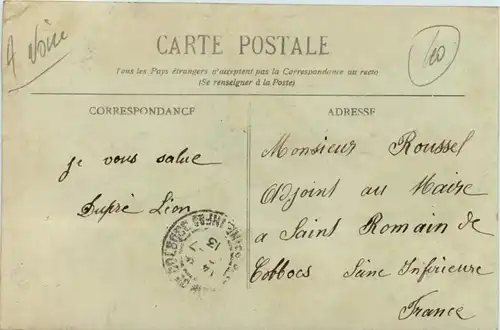 A voir
20
CARTE POSTALE
Tous les Pays étrangers n'acceptent pas la Correspondance au recto
(Se renseigner à la Poste)
CORRESPONDANCE
ADRESSE
je vous salue
Dupré Léon
Monsieur Roussel
Adjoint au Maire
a Saint Romain de
Colbocs Seine Inférieure
France